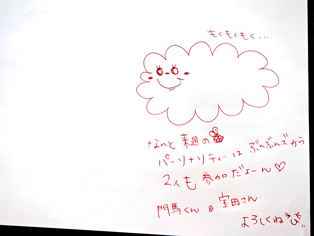 もくもくもく…
なんと 来週の
パーソナリティーは ぶんぶんズから
2人も 参加だよーん♡
門馬くん & 宝田さん
よろしくね